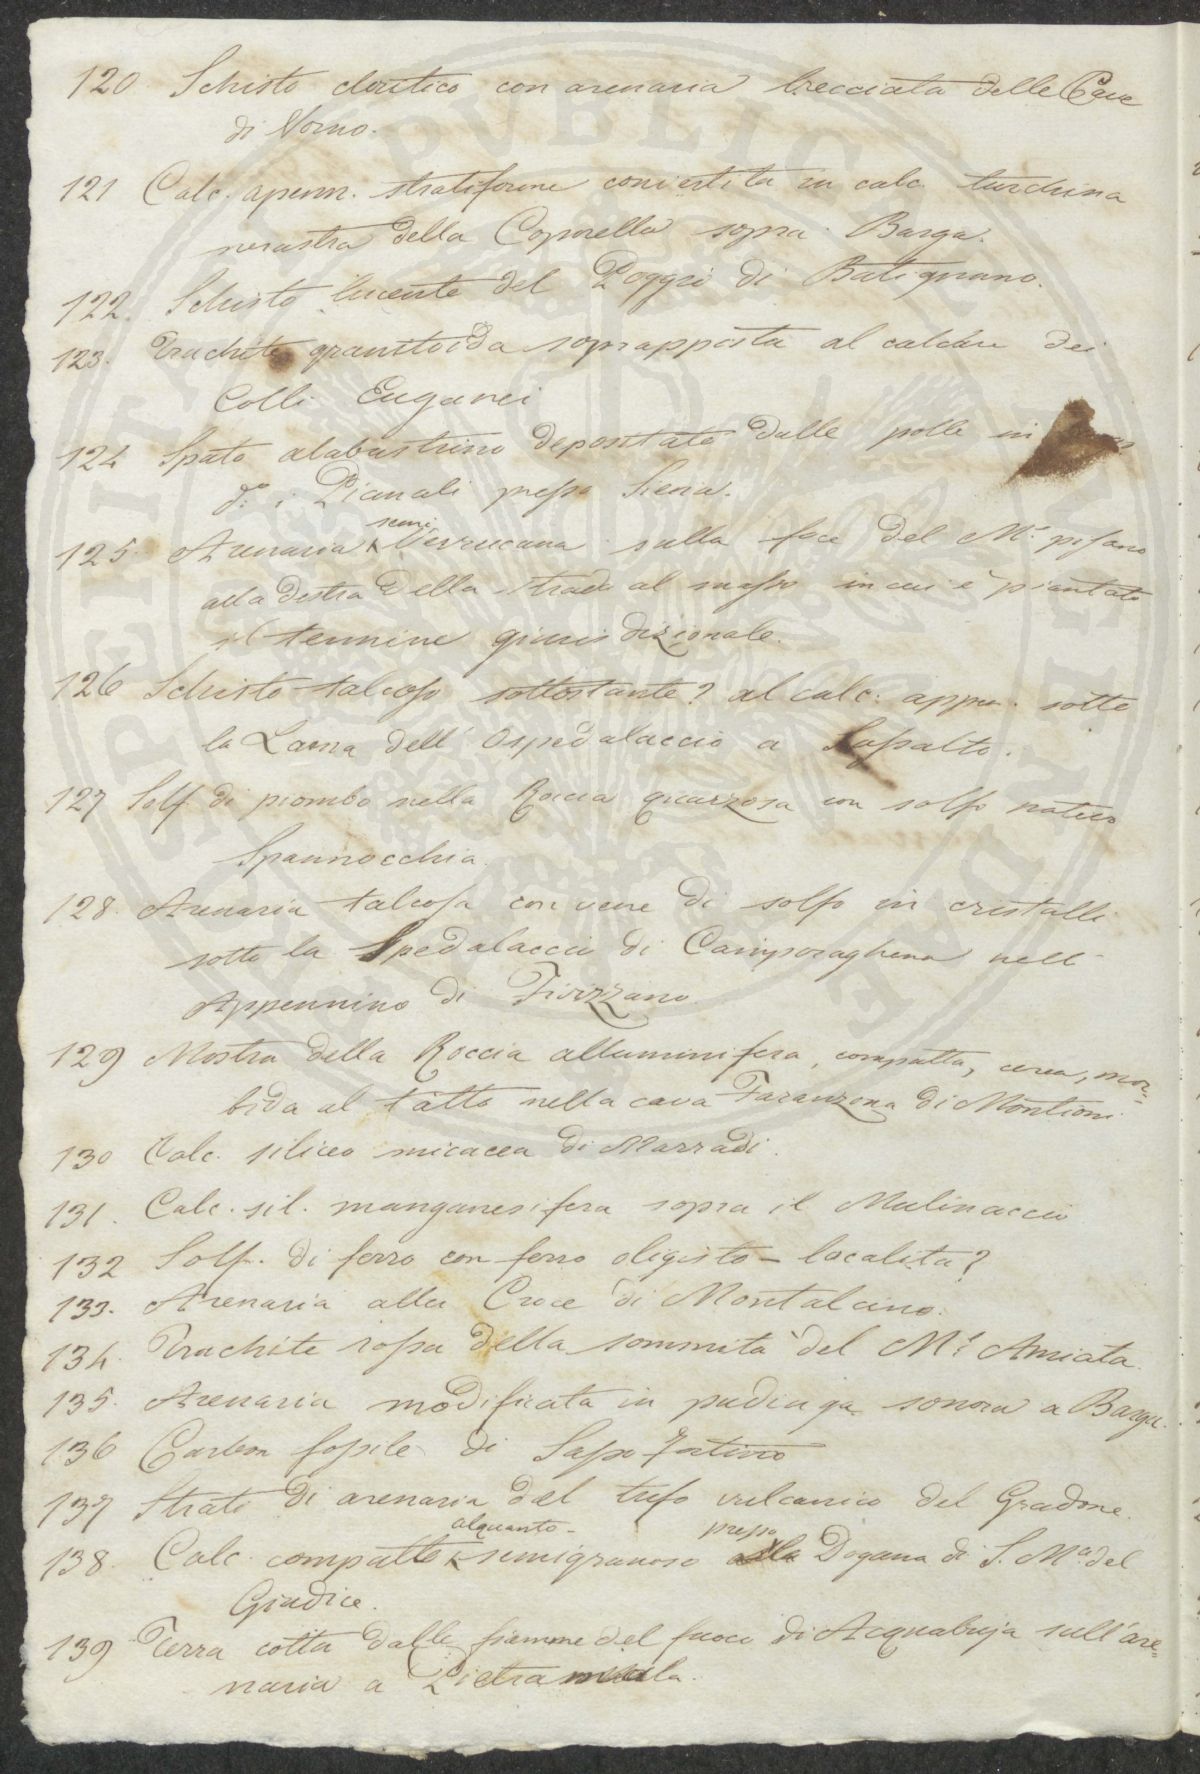 120 Schisto cloritico con arenaria brecciata delle Cave
di Vorno.
121 Calc. apenn. stratiforme convertita in calc. turchina
nerastra della Coporella sopra Barga.
122. Schisto lucente del Poggio di Batignano.
123. Trachite granitoida soprapposta al calcare dei
Colli Euganei
124 Spato alabastrino depositato dalle polle in
i Pianali presso Siena.
125. Arenaria semi Verrucana sulla foce del Mte pisano
alla destra della strada al masso in cui è piantato
il termine giurisdizionale.
126 Schisto talcoso sottostante? al calc. appen. sotto
la Lama dell' Ospedalaccio a Sassalto.
127 Solf. di piombo nella Roccia quarzosa con solfo nativo
Spannocchia.
128. Arenaria talcosa con vene di solfo in cristalli
sotto la Spedalaccio di Camporaghena nell'
Appennino di Fivizzano.
129 Mostra della Roccia alluminifera, compatta, cerea, mor=
bida al tatto nella cava Taranzona di Montioni.
130 Calc. siliceo micacea di Marradi.
131. Calc. sil. manganesifera sopra il Mulinaccio
132 Solf. di ferro con ferro oligisto - localita?
133. Arenaria alla Croce di Montalcino.
134. Trachite rossa della sommità del Mte Amiata.
135. Arenaria modificata in pudinga sonora a Barga.
136 Carbon fossile di Sasso Fortino
137 Strati di arenaria del tufo vulcanico del Gradone.
138. Calc. compatto alquanto semigranoso presso la Dogana di S. Ma. del
Giudice.
139 Terra cotta dalle fiamme del fuoco di Acquabuja sull'are=
naria a Pietramala.
PVBLICAE VTILITATI